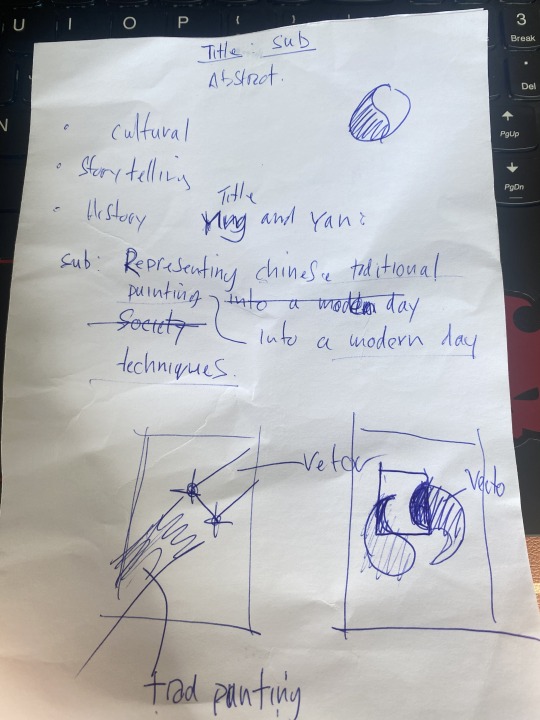 U I O P
3
Break
Del
PgUp
PgDn
N
Title : Sub
Abstract.
• cultural
• Storytelling
• History
Title
Ying and Yan:
Sub: Representing chinese traditional
painting into a modern day
Society
into a modern day
techniques.
vetor
Vecto
trad panting